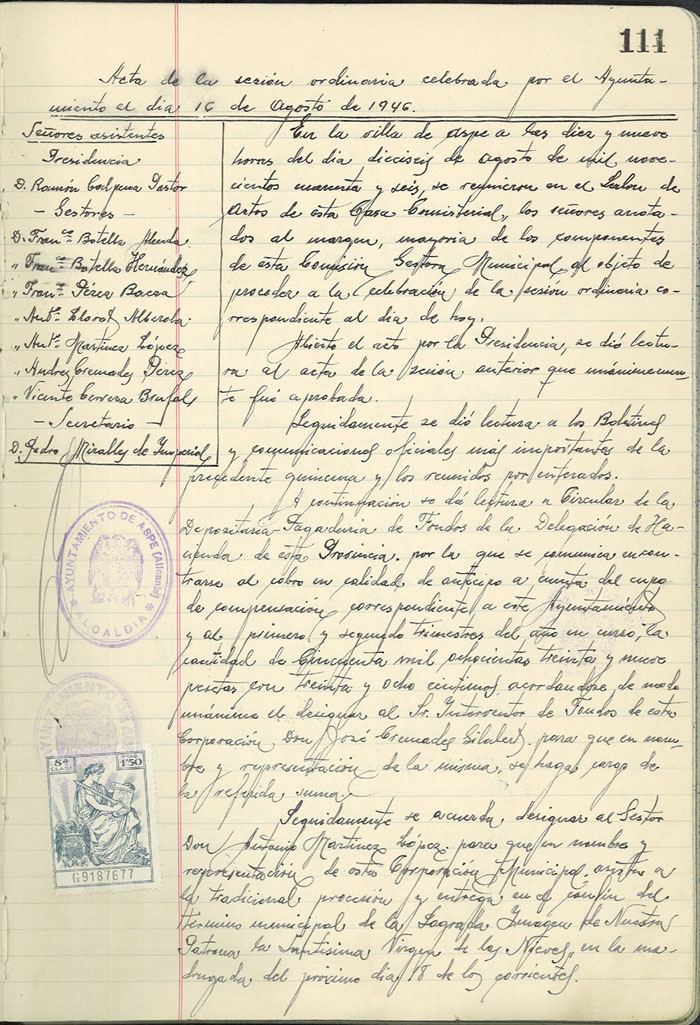 111
Acta de la sesión ordinaria celebrada por el Ayunta-
miento el dia 16 de Agosto de 1946.
Señores asistentes
Presidencia
D. Ramón Calpena Pastor
- Gestores -
D. Franco. Botella Alenda
" Franco. Botella Hernández
" Franco. Pérez Baeza
" Anto. Lloret Alberola
" Anto. Martínez López
" Andres Cremades Pérez
" Vicente Cervera Brufal
- Secretario -
D. Pedro Miralles de Imperial
En la villa de Aspe a las diez y nueve
horas del dia dieciseis de agosto de mil nove-
cientos cuarenta y seis, se reunieron en el Salon de
Actos de esta Casa Consistorial, los señores anota-
dos al margen, mayoria de los componentes
de esta Comisión Gestora Municipal al objeto de
proceder a la celebración de la sesión ordinaria co-
rrespondiente al dia de hoy.
Abierto el acto por la Presidencia, se dió lectu-
ra al acta de la sesión anterior que unánimemen-
te fué aprobada.
Seguidamente se dió lectura a los Boletines
y comunicaciones oficiales más importantes de la
precedente quincena y los reunidos por enterados.
A continuación se dá lectura a Circular de la
Depositaria-Pagaduria de Fondos de la Delegación de Ha-
cienda de esta Provincia, por la que se comunica encon-
trarse al cobro en calidad de anticipo a cuenta del cupo
de compensación correspondiente a este Ayuntamiento
y al primero y segundo trimestres del año en curso, la
cantidad de Cincuenta mil ochocientas treinta y nueve
pesetas con treinta y ocho céntimos, acordandose de modo
unánime el designar al Sr. Interventor de Fondos de esta
Corporación Don José Cremades Gilabert, para que en nom-
bre y representación de la misma, se haga cargo de
la referida suma.
Seguidamente se acuerda designar al Gestor
Don Antonio Martínez López para que en nombre y
representación de esta Corporación Municipal asista a
la tradicional procesión y entrega en el confín del
término municipal de la Sagrada Imagen de Nuestra
Patrona la Santísima Virgen de las Nieves, en la ma-
drugada del próximo dia 18 de los corrientes.
AYUNTAMIENTO DE ASPE (Alicante)
ALCALDIA
AYUNTAMIENTO DE
8ª CLASE
PTAS 1'50
G9187677